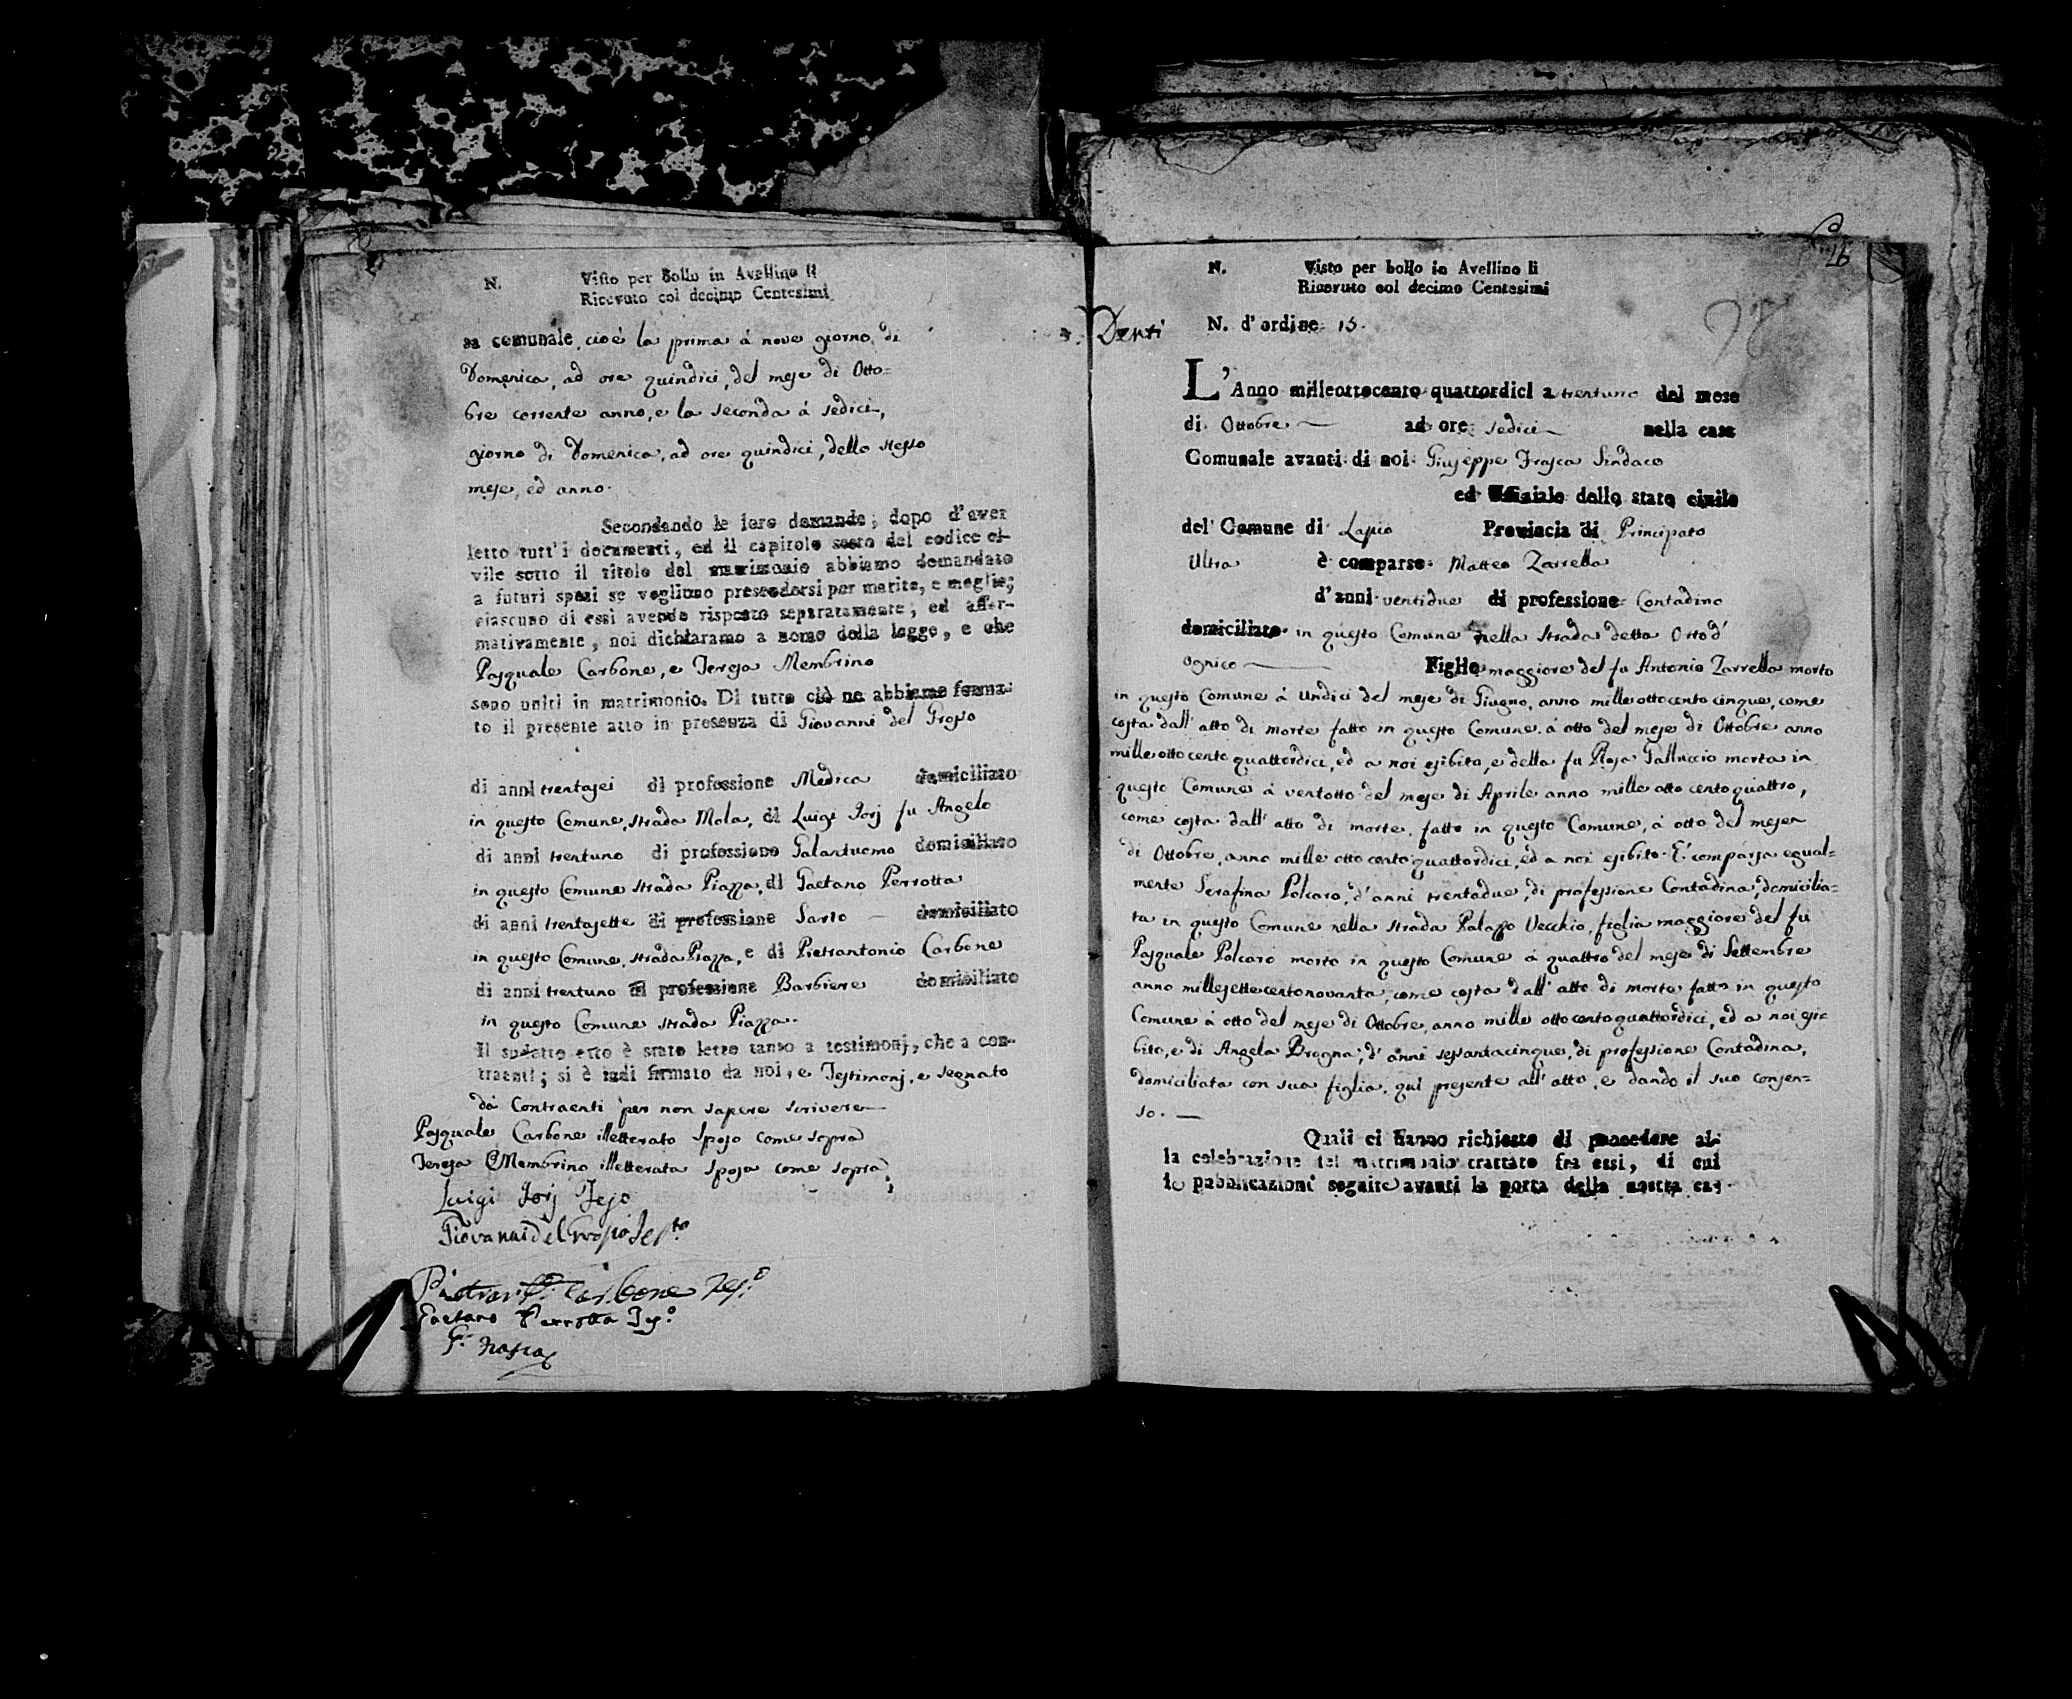 N. Visto per bollo in Avellino li
Ricevuto col decimo Centesimi
sa comunale, cioè la prima á nove giorno, di
Domenica, ad ore quindici, del mese di Otto=
bre corrente anno, e la seconda á sedici,
giorno di Domenica, ad ore quindici, dello stesso
mese, ed anno.
Secondando le loro domande; dopo d'aver
letto tutt'i documenti, ed il capitolo sesto del codice ci-
vile sotto il titolo del matrimonio abbiamo domandato
a futuri sposi se vogliono prendersi per marito, e moglie;
ciascuno di essi avendo risposto separatamente, ed affer-
mativamente, noi dichiaramo a nome della legge, e che
Pasquale Carbone, e Teresa Membrino
sono uniti in matrimonio. Di tutto ciò ne abbiamo forma-
to il presente atto in presenza di Giovanni del Grosso
di anni trentasei di professione Medico domiciliato
in questo Comune, strada Mola, di Luigi Jorj fu Angelo
di anni trentuno di professione Galantuomo domiciliato
in questo Comune strada Piazza, di Gaetano Perrotta
di anni trentasette di professione Sarto domiciliato
in questo Comune, strada Piazza, e di Pietrantonio Carbone
di anni trentuno di professione Barbiere domiciliato
in questo Comune strada Piazza.
Il sudetto atto è stato letto tanto a testimonj, che a con-
traenti; si è indi firmato da noi, e Testimonj, e segnato
da Contraenti per non sapere scrivere
Pasquale Carbone illetterato sposo come sopra
Teresa Membrino illetterata sposa come sopra
Luigi Jorj Teso
Giovanni del Grosso Testo
Carbone Teso
Gaetano Perrotta Teso
G. Frasca
N. Visto per bollo in Avellino li
Ricevuto col decimo Centesimi
N. d'ordine 15.
L'Anno milleottocento quattordici a trentuno del mese
di Ottobre ad ore sedici nella casa
Comunale avanti di noi Giuseppe Frasca Sindaco
ed Uffiziale dello stato civile
del Comune di Lapio Provincia di Principato
Ultra è comparso Matteo Zarrella
d'anni ventidue di professione Contadino
domiciliato in questo Comune nella strada detta Orto d'
ognico Figlio maggiore del fu Antonio Zarrella morto
in questo Comune á undici del mese di Giugno, anno mille ottocento cinque, come
costa dall' atto di morte fatto in questo Comune á otto del mese di Ottobre anno
mille otto cento quattordici, ed a noi esibito, e della fu Rosa Galluccio morta in
questo Comune á ventotto del mese di Aprile anno mille otto cento quattro,
come costa dall' atto di morte, fatto in questo Comune, á otto del mese
di Ottobre, anno mille otto cento quattordici, ed a noi esibito. E' comparsa egual=
mente Serafina Polcaro, d'anni trentadue, di professione Contadina, domicilia=
ta in questo Comune nella strada Palazzo Vecchio, figlia maggiore del fu
Pasquale Polcaro morto in questo Comune á quattro del mese di Settembre
anno millesettecentonovanta, come costa dall' atto di morte fatto in questo
Comune á otto del mese di Ottobre, anno mille otto cento quattordici, ed a noi esi=
bito, e di Angela Brogna, d'anni sessantacinque, di professione Contadina,
domiciliata con sua figlia, qui presente all' atto, e dando il suo consen=
so.
Quali ci hanno richiesto di procedere al-
la celebrazione del matrimonio trattato fra essi, di cui
le pubblicazioni seguite avanti la porta della nostra ca-